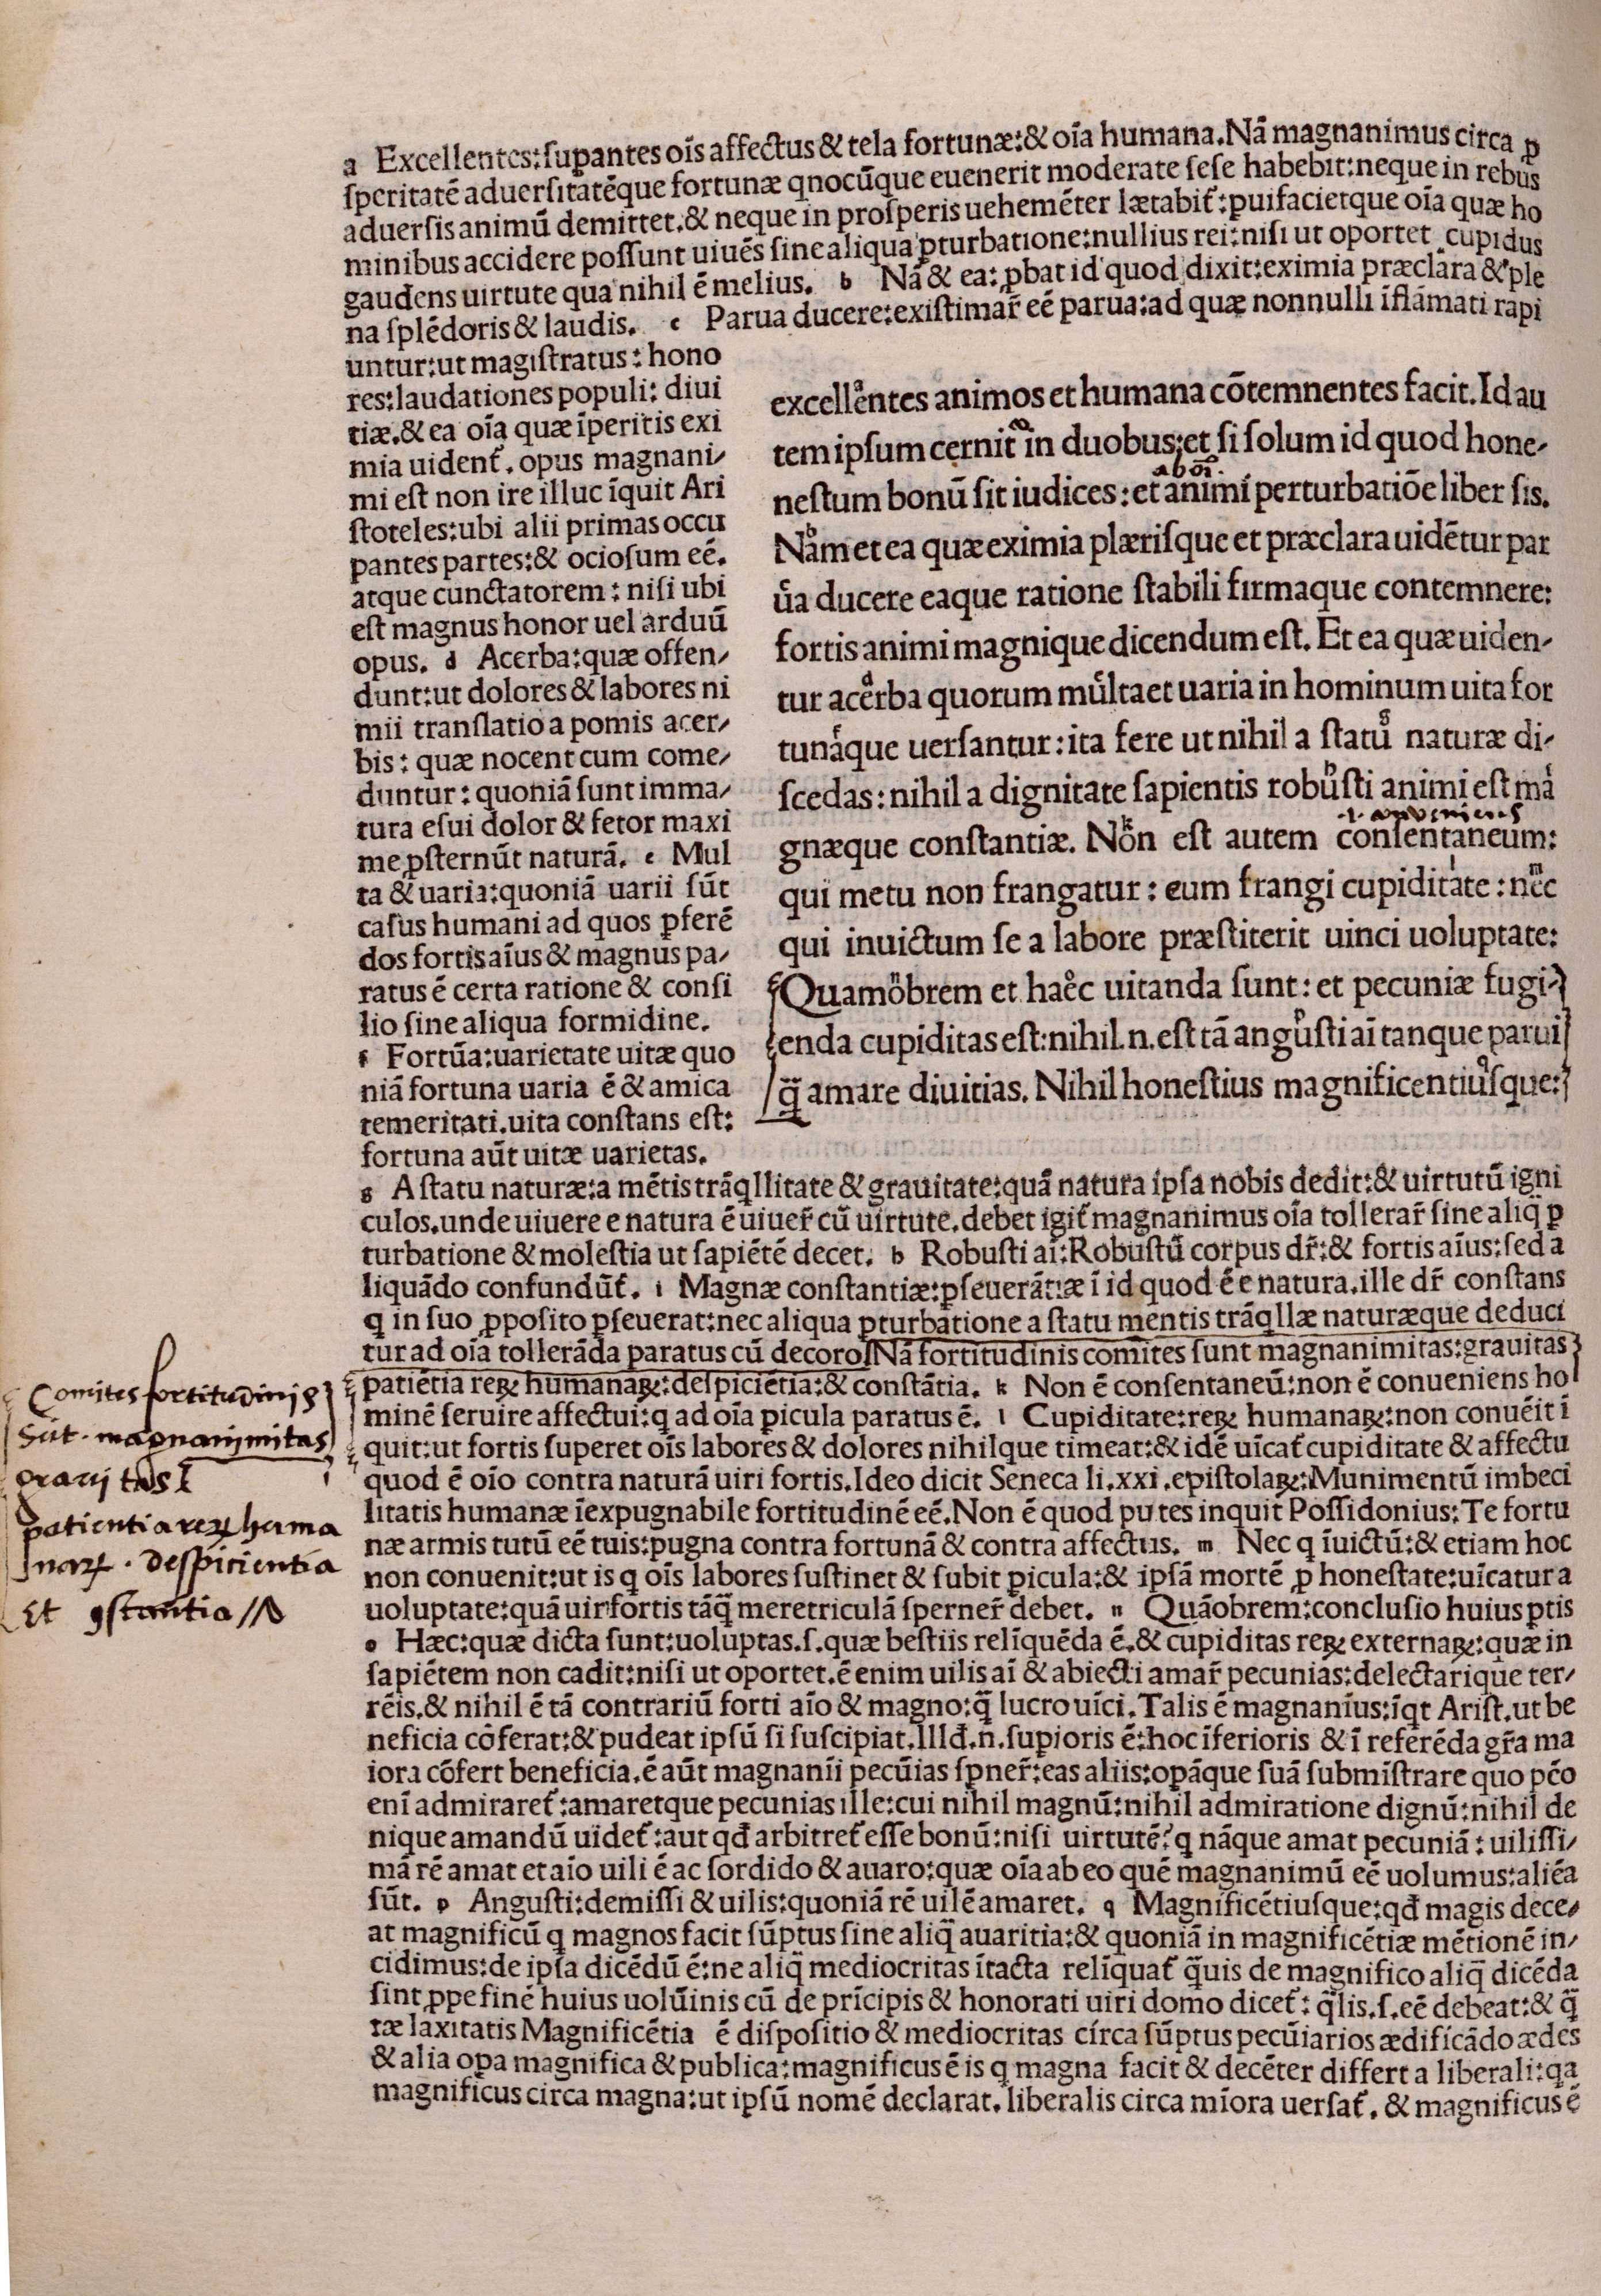 a Excellentes:ſuꝑantes oīs affectus & tela fortunæ:& oīa humana. Nā magnanimus circa ꝓ
ſperitatē aduerſitatēque fortunæ qnocūque euenerit moderate ſeſe habebit:neque in rebus
aduerſis animū demittet.& neque in proſperis uehemēter lætabit᷑:ꝑuifacietque oīa quæ ho
minibus accidere poſſunt uiuēs ſine aliqua ꝑturbatione:nullius rei:niſi ut oportet cupidus
gaudens uirtute qua nihil ē melius. b Nā & ea: ꝓbat id quod dixit:eximia præclara & ple
na ſplēdoris & laudis. c Parua ducere:exiſtimar̄ eē parua:ad quæ nonnulli īflāmati rapi
untur:ut magiſtratus: hono
res:laudationes populi: diui
tiæ.& ea oīa quæ īperitis exi
mia uident᷑. opus magnani⸗
mi eſt non ire illuc īquit Ari
ſtoteles:ubi alii primas occu
pantes partes:& ocioſum eē.
atque cunctatorem: niſi ubi
eſt magnus honor uel arduū
opus. d Acerba:quæ offen⸗
dunt:ut dolores & labores ni
mii tranſlatio a pomis acer⸗
bis: quæ nocent cum come⸗
duntur: quoniā ſunt imma⸗
tura eſui dolor & fetor maxi
me ꝓſternūt naturā. e Mul
ta & uaria:quoniā uarii ſūt
caſus humani ad quos ꝑferē
dos fortis aīus & magnus pa⸗
ratus ē certa ratione & conſi
lio ſine aliqua formidine.
f Fortūa:uarietate uitæ quo
niā fortuna uaria ē & amica
temeritati.uita conſtans eſt:
fortuna aūt uitæ uarietas.
excellentes animos et humana cōtemnentes facit. Id au
tem ipſum cernit᷑ in duobus:et ſi ſolum id quod hone⸗
neſtum bonū ſit iudices: et animi perturbatiōe liber ſis.
Nam et ea quæ eximia plæriſque et præclara uidētur par
ua ducere eaque ratione ſtabili firmaque contemnere:
fortis animi magnique dicendum eſt. Et ea quæ uiden⸗
tur acerba quorum multa et uaria in hominum uita for
tunaque uerſantur: ita fere ut nihil a ſtatu naturæ di⸗
ſcedas: nihil a dignitate ſapientis robuſti animi eſt ma
.i. conueniens
gnæque conſtantiæ. Non eſt autem conſentaneum:
qui metu non frangatur: eum frangi cupiditate: nec
qui inuictum ſe a labore præſtiterit uinci uoluptate:
Quamobrem et haec uitanda ſunt: et pecuniæ fugi⸗
enda cupiditas eſt:nihil.n.eſt tā anguſti aī tanque parui
q̄ amare diuitias. Nihil honeſtius magnificentiuſque:
g A ſtatu naturæ:a mētis trāqllitate & grauitate:quā natura ipſa nobis dedit:& uirtutū igni
culos.unde uiuere e natura ē uiuer̄ cū uirtute.debet igit᷑ magnanimus oīa tollerar̄ ſine aliq̄ ꝑ
turbatione & moleſtia ut ſapiētē decet. h Robuſti aī:Robuſtū corpus dr̄:& fortis aīus:ſed a
liquādo confundūt᷑. i Magnæ conſtantiæ:ꝑſeuerātiæ ī id quod ē e natura.ille dr̄ conſtans
q in ſuo ꝓpoſito ꝑſeuerat:nec aliqua ꝑturbatione a ſtatu mentis trāqllæ naturæque deduci
tur ad oīa tollerāda paratus cū decoro. Nā fortitudinis comites ſunt magnanimitas:grauitas
patiētia reꝝ humanaꝝ:deſpiciētia:& conſtātia. k Non ē conſentaneū:non ē conueniens ho
minē ſeruire affectui:q ad oīa ꝑicula paratus ē. l Cupiditate:reꝝ humanaꝝ:non conuēit ī
quit:ut fortis ſuperet oīs labores & dolores nihilque timeat:& idē uīcat᷑ cupiditate & affectu
quod ē oīo contra naturā uiri fortis. Ideo dicit Seneca li.xxi.epiſtolaꝝ: Munimentū imbeci
litatis humanæ īexpugnabile fortitudinē eē. Non ē quod putes inquit Poſſidonius: Te fortu
næ armis tutū eē tuis:pugna contra fortunā & contra affectus. m Nec q īuictū:& etiam hoc
non conuenit:ut is q oīs labores ſuſtinet & ſubit ꝑicula:& ipſā mortē ꝓ honeſtate:uīcatur a
uoluptate:quā uir fortis tāq̄ meretriculā ſperner̄ debet. n Quāobrem:concluſio huius ꝑtis
o Hæc:quæ dicta ſunt:uoluptas.ſ.quæ beſtiis relīquēda ē.& cupiditas reꝝ externaꝝ:quæ in
ſapiētem non cadit:niſi ut oportet.ē enim uilis aī & abiecti amar̄ pecunias:delectarique ter⸗
rēis.& nihil ē tā contrariū forti aīo & magno:q̄ lucro uīci. Talis ē magnanīus:īqt Ariſt.ut be
neficia cōferat:& pudeat ipſū ſi ſuſcipiat. Illđ.n.ſuꝑioris ē:hoc īferioris & ī referēda gr̄a ma
iora cōfert beneficia.ē aūt magnanīi pecūias ſꝑner̄:eas aliis:oꝑāque ſuā ſubmīſtrare quo pc̄o
enī admiraret᷑:amaretque pecunias ille:cui nihil magnū:nihil admiratione dignū:nihil de
nique amandū uidet᷑:aut qđ arbitret᷑ eſſe bonū:niſi uirtutē? q nāque amat pecuniā: uiliſſi⸗
mā rē amat et aīo uili ē ac ſordido & auaro:quæ oīa ab eo quē magnanimū eē uolumus:aliēa
ſūt. p Anguſti:demiſſi & uilis:quoniā rē uilē amaret. q Magnificētiuſque:qđ magis dece⸗
at magnificū q magnos facit ſūptus ſine aliq̄ auaritia:& quoniā in magnificētiæ mētionē in⸗
cidimus:de ipſa dicēdū ē:ne aliq̄ mediocritas ītacta relīquat᷑ q̄uis de magnifico aliq̄ dicēda
ſint ꝓpe finē huius uolūinis cū de prīcipis & honorati uiri domo dicet᷑: q̄lis.ſ.eē debeat:& q̄
tæ laxitatis Magnificētia ē diſpoſitio & mediocritas circa ſūptus pecūiarios ædificādo ædes
& alia oꝑa magnifica & publica:magnificus ē is q magna facit & decēter differt a liberali:qa
magnificus circa magna:ut ipſū nomē declarat. liberalis circa mīora uerſat᷑. & magnificus ē
Comites fortitudinis
Sūt . magnanimitas
grauitas
patientia reꝝ huma
naꝝ . deſpicientia
Et ꝯſtantia